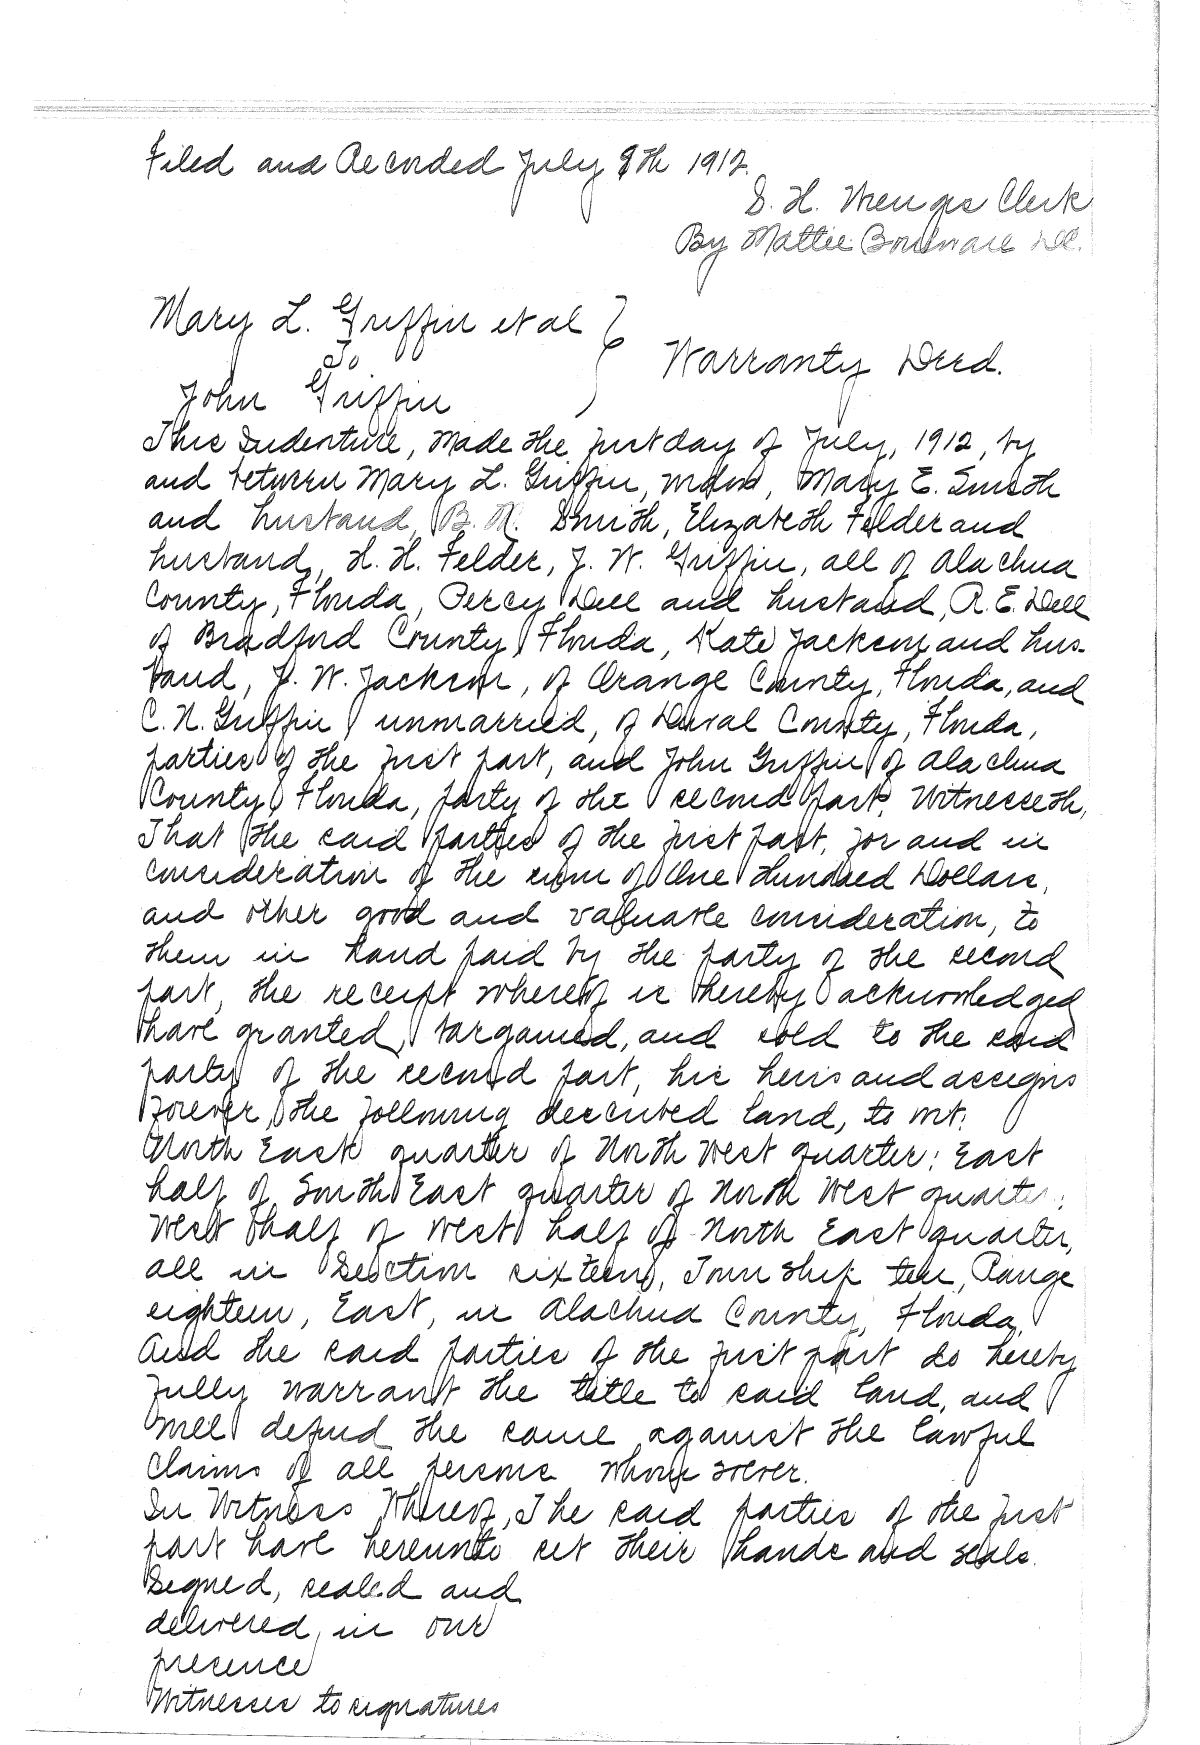 Filed and Recorded July 8th 1912.
S. H. Wienges Clerk
By Mattie Boulware D.C.
Mary L. Griffin et al
To
Warranty Deed.
John Griffin
This Indenture, Made the first day of July, 1912, by
and between Mary L. Griffin, widow, Mary E. Smith
and husband, B. R. Smith, Elizabeth Felder and
husband, H. H. Felder, J. W. Griffin, all of Alachua
County, Florida, Percy Dell and husband, R. E. Dell
of Bradford County, Florida, Kate Jackson and hus-
band, J. W. Jackson, of Orange County, Florida, and
C. N. Griffin, unmarried, of Duval County, Florida,
parties of the first part, and John Griffin of Alachua
County, Florida, party of the second part, Witnesseth,
That the said parties of the first part, for and in
consideration of the sum of One Hundred Dollars,
and other good and valuable consideration, to
them in hand paid by the party of the second
part, the receipt whereof is hereby acknowledged
have granted, bargained, and sold to the said
party of the second part, his heirs and assigns
forever, the following described land, to wit:
North East quarter of North West quarter; East
half of South East quarter of North West quarter;
West half of West half of North East quarter,
all in Section sixteen, Town ship ten, Range
eighteen, East, in Alachua County, Florida.
And the said parties of the first part do hereby
fully warrant the title to said land, and
will defend the same against the lawful
claims of all persons whom soever.
In Witness Whereof, The said parties of the first
part have hereunto set their hands and seals.
Signed, sealed and
delivered, in our
presence
Witnesses to signatures